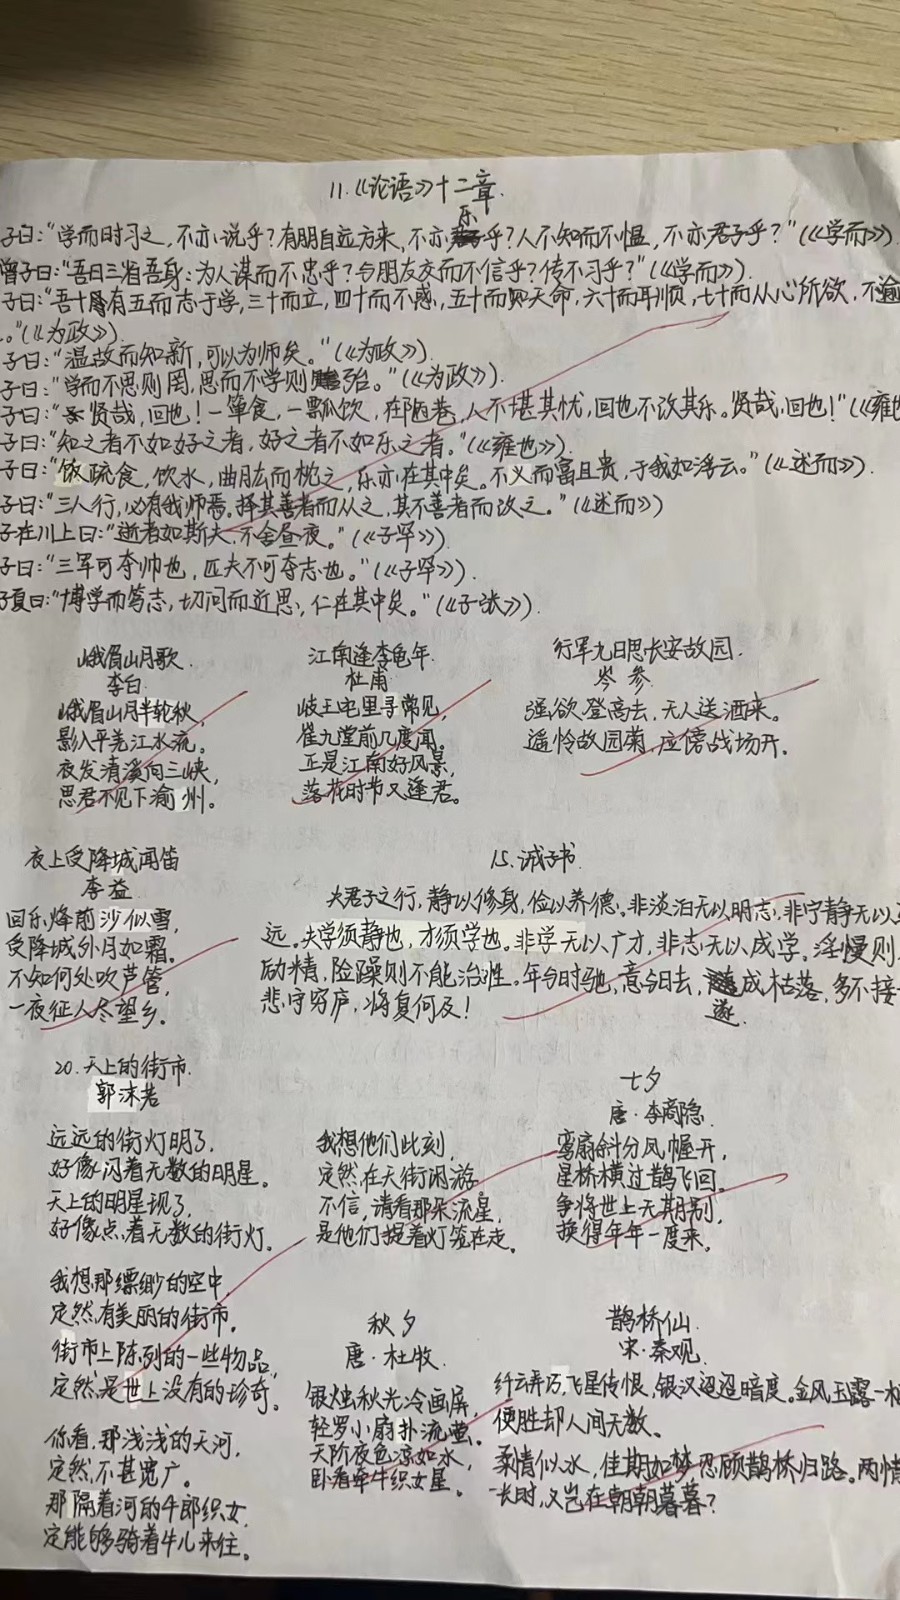 11.《论语》十二章.
子曰:“学而时习之,不亦说乎?有朋自远方来,不亦乐乎?人不知而不愠,不亦君子乎?”(《学而》)
曾子曰:“吾日三省吾身:为人谋而不忠乎?与朋友交而不信乎?传不习乎?”(《学而》)
子曰:“吾十有五而志于学,三十而立,四十而不惑,五十而知天命,六十而耳顺,七十而从心所欲,不逾
。”(《为政》)
子曰:“温故而知新,可以为师矣。”(《为政》)
子曰:“学而不思则罔,思而不学则殆。”(《为政》).
子曰:“贤哉,回也!一箪食,一瓢饮,在陋巷,人不堪其忧,回也不改其乐。贤哉,回也!”(《雍也
子曰:“知之者不如好之者,好之者不如乐之者。”(《雍也》)
子曰:“饭疏食,饮水,曲肱而枕之,乐亦在其中矣。不义而富且贵,于我如浮云。”(《述而》).
子曰:“三人行,必有我师焉。择其善者而从之,其不善者而改之。”(《述而》)
子在川上曰:“逝者如斯夫,不舍昼夜。”(《子罕》)
子曰:“三军可夺帅也,匹夫不可夺志也。”(《子罕》).
子夏曰:“博学而笃志,切问而近思,仁在其中矣。”(《子张》).
峨眉山月歌.
李白
峨眉山月半轮秋,
影入平羌江水流。
夜发清溪向三峡,
思君不见下渝州。
江南逢李龟年
杜甫
岐王宅里寻常见,
崔九堂前几度闻。
正是江南好风景,
落花时节又逢君。
行军九日思长安故园.
岑参
强欲登高去,无人送酒来。
遥怜故园菊,应傍战场开。
夜上受降城闻笛
李益
回乐烽前沙似雪,
受降城外月如霜。
不知何处吹芦管,
一夜征人尽望乡。
15.诫子书
夫君子之行,静以修身,俭以养德。非淡泊无以明志,非宁静无以
远。夫学须静也,才须学也。非学无以广才,非志无以成学。淫慢则
励精,险躁则不能治性。年与时驰,意与日去,遂成枯落,多不接
悲守穷庐,将复何及!
20.天上的街市.
郭沫若
远远的街灯明了,
好像闪着无数的明星。
天上的明星现了,
好像点着无数的街灯。
我想那缥缈的空中,
定然有美丽的街市。
街市上陈列的一些物品,
定然是世上没有的珍奇。
你看,那浅浅的天河,
定然不甚宽广。
那隔着河的牛郎织女,
定能够骑着牛儿来往。
我想他们此刻,
定然在天街闲游
不信,请看那朵流星,
是他们提着灯笼在走。
七夕
唐·李商隐
鸾扇斜分凤幄开,
星桥横过鹊飞回。
争将世上无期别,
换得年年一度来。
秋夕
唐·杜牧
银烛秋光冷画屏,
轻罗小扇扑流萤。
天阶夜色凉如水,
卧看牵牛织女星。
鹊桥仙.
宋·秦观
纤云弄巧,飞星传恨,银汉迢迢暗度。金风玉露一相
便胜却人间无数。
柔情似水,佳期如梦,忍顾鹊桥归路。两情
长时,又岂在朝朝暮暮?